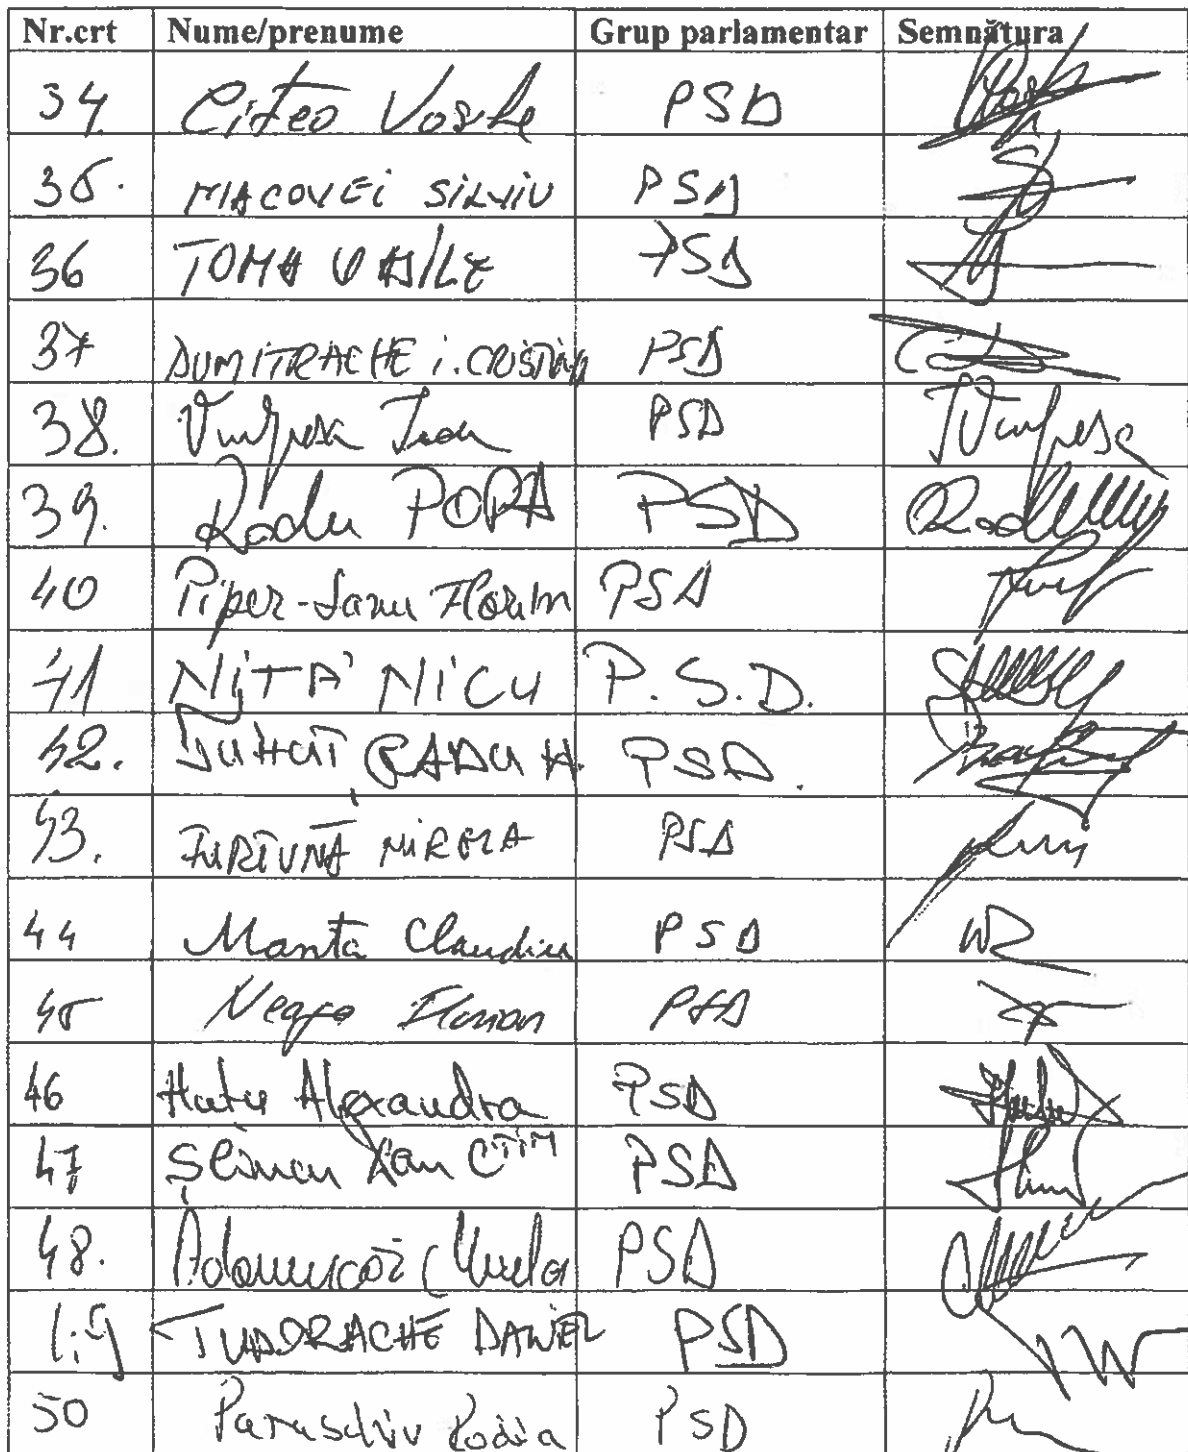 Nr.crt Nume/prenume Grup parlamentar Semnătura
34. Cîtea Vasile PSD
35. MACOVEI SILVIU PSD
36 TOMA VASILE PSD
37 DUMITRACHE i. CRISTINA PSD
38. Vulpescu Ioan PSD
39. Radu POPA PSD
40 Piper-Savu Florin PSD
41 NIȚĂ NICU P.S.D.
42. RADU M. PSD
43. FURTUNĂ MIRELA PSD
44 Manta Claudiu PSD
45 Neața Florian PSD
46 Huțu Alexandra PSD
47 Șlincu Dan PSD
48. PSD
49 TUDORACHE DANIEL PSD
50 Paraschiv Rodica PSD